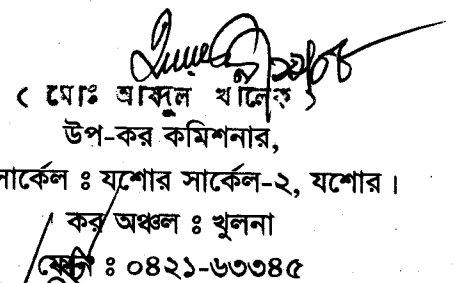 ( মোঃ আব্দুল খালেক )
উপ-কর কমিশনার,
সার্কেল ঃ যশোর সার্কেল-২, যশোর।
কর অঞ্চল ঃ খুলনা
ফোন ঃ ০৪২১-৬৩৩৪৫